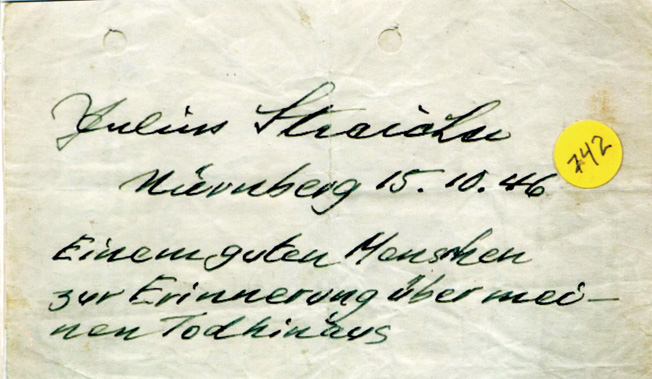 Julius Streicher
Nürnberg 15.10.46
742
Einem guten Menschen
zur Erinnerung über mei-
nen Tod hinaus